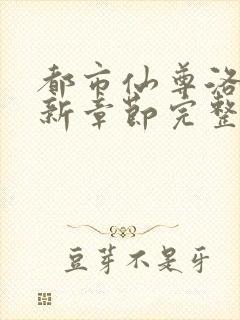 都市仙尊洛
新章节完整
豆芽不是牙